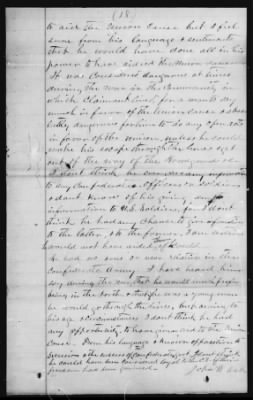 (18)
to aid the Union Cause but I feel
sure from his language & sentiments
that he would have done all in his
power to have aided the Union cause
It was considered dangerous at times
during the war in the Community in
which Claimant lived for a man to say
much in favor of the Union cause, &
dangerous for him to do any
in favor of the Union, unless he could
make his escape through the lines & get
out of the way of the Homeguards &c.
I don't think he gave any information
to any Confederate Officers or Soldiers
& don't know of his giving any
information to U.S. Soldiers, for I don't
think he had any chance to give information
to the latter, & to the former, I am certain
would not have aided if he could.
He had no sons or near relation in the
Confederate Army. I have heard him
say during the war, that he would much prefer
being in the North & that if he was a young man
he would go through the lines, but owing to
his age & circumstances I don't think he had
any opportunity to have given aid to the Union
cause. From his language & known opposition to
Secession & the success of the Confederacy I don't think
he could have been
had been gained.
John W.